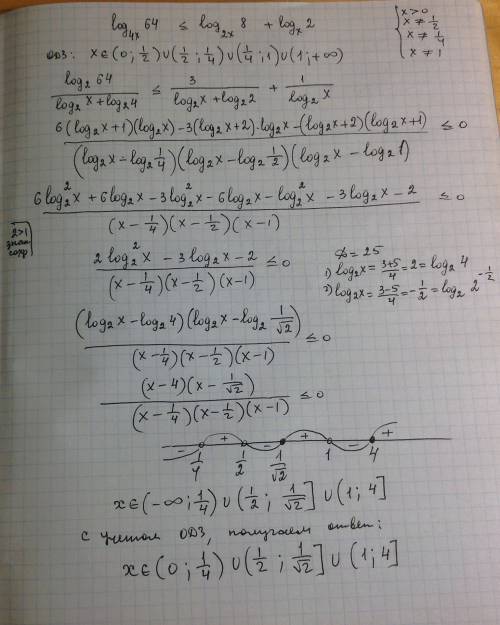 log_{4x} 64 ≤ log_{2x} 8 + log_x 2
{ x>0
x≠1/2
x≠1/4
x≠1
ОДЗ: x∈(0; 1/2)∪(1/2; 1/4)∪(1/4; 1)∪(1; +∞)
log₂64/(log₂x+log₂4) ≤ 3/(log₂x+log₂2) + 1/log₂x
(6(log₂x+1)(log₂x)−3(log₂x+2)·log₂x−(log₂x+2)(log₂x+1))/((log₂x−log₂1/4)(log₂x−log₂1/2)(log₂x−log₂1)) ≤ 0
(6log₂²x+6log₂x−3log₂²x−6log₂x−log₂²x−3log₂x−2)/((x−1/4)(x−1/2)(x−1)) ≤ 0
2>1
знак
сохр
(2log₂²x−3log₂x−2)/((x−1/4)(x−1/2)(x−1)) ≤ 0
D=25
1) log₂x=(3+5)/4=2=log₂4
2) log₂x=(3−5)/4=−1/2=log₂2^{−1/2}
((log₂x−log₂4)(log₂x−log₂1/√2))/((x−1/4)(x−1/2)(x−1)) ≤ 0
((x−4)(x−1/√2))/((x−1/4)(x−1/2)(x−1)) ≤ 0
− + − + − +
1/4 1/2 1/√2 1 4
x∈(−∞; 1/4)∪(1/2; 1/√2]∪(1; 4]
С учетом ОДЗ, получаем ответ:
x∈(0; 1/4)∪(1/2; 1/√2]∪(1; 4]